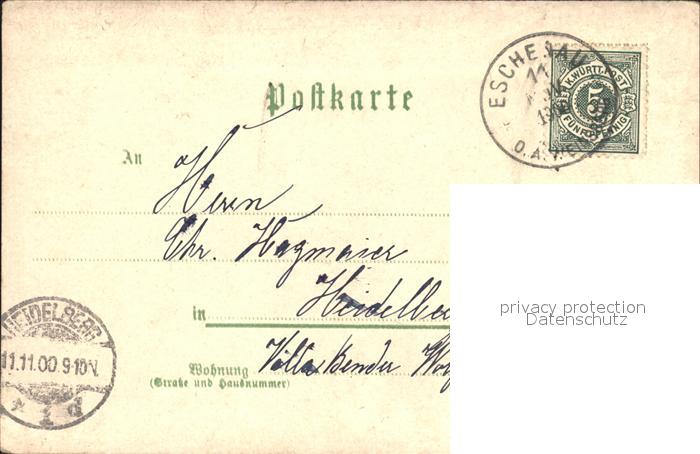 ESCHENAU
11
O.A. WEI
K. WÜRTT. POST
5
FÜNF PFENNIG
Postkarte
An
Herrn
Chr. Hagmaier
in Heidelbe
Wohnung Villa Bender
(Straße und Hausnummer)
HEIDELBERG
11.11.00.9-10V.
* 1 d
privacy protection
Datenschutz